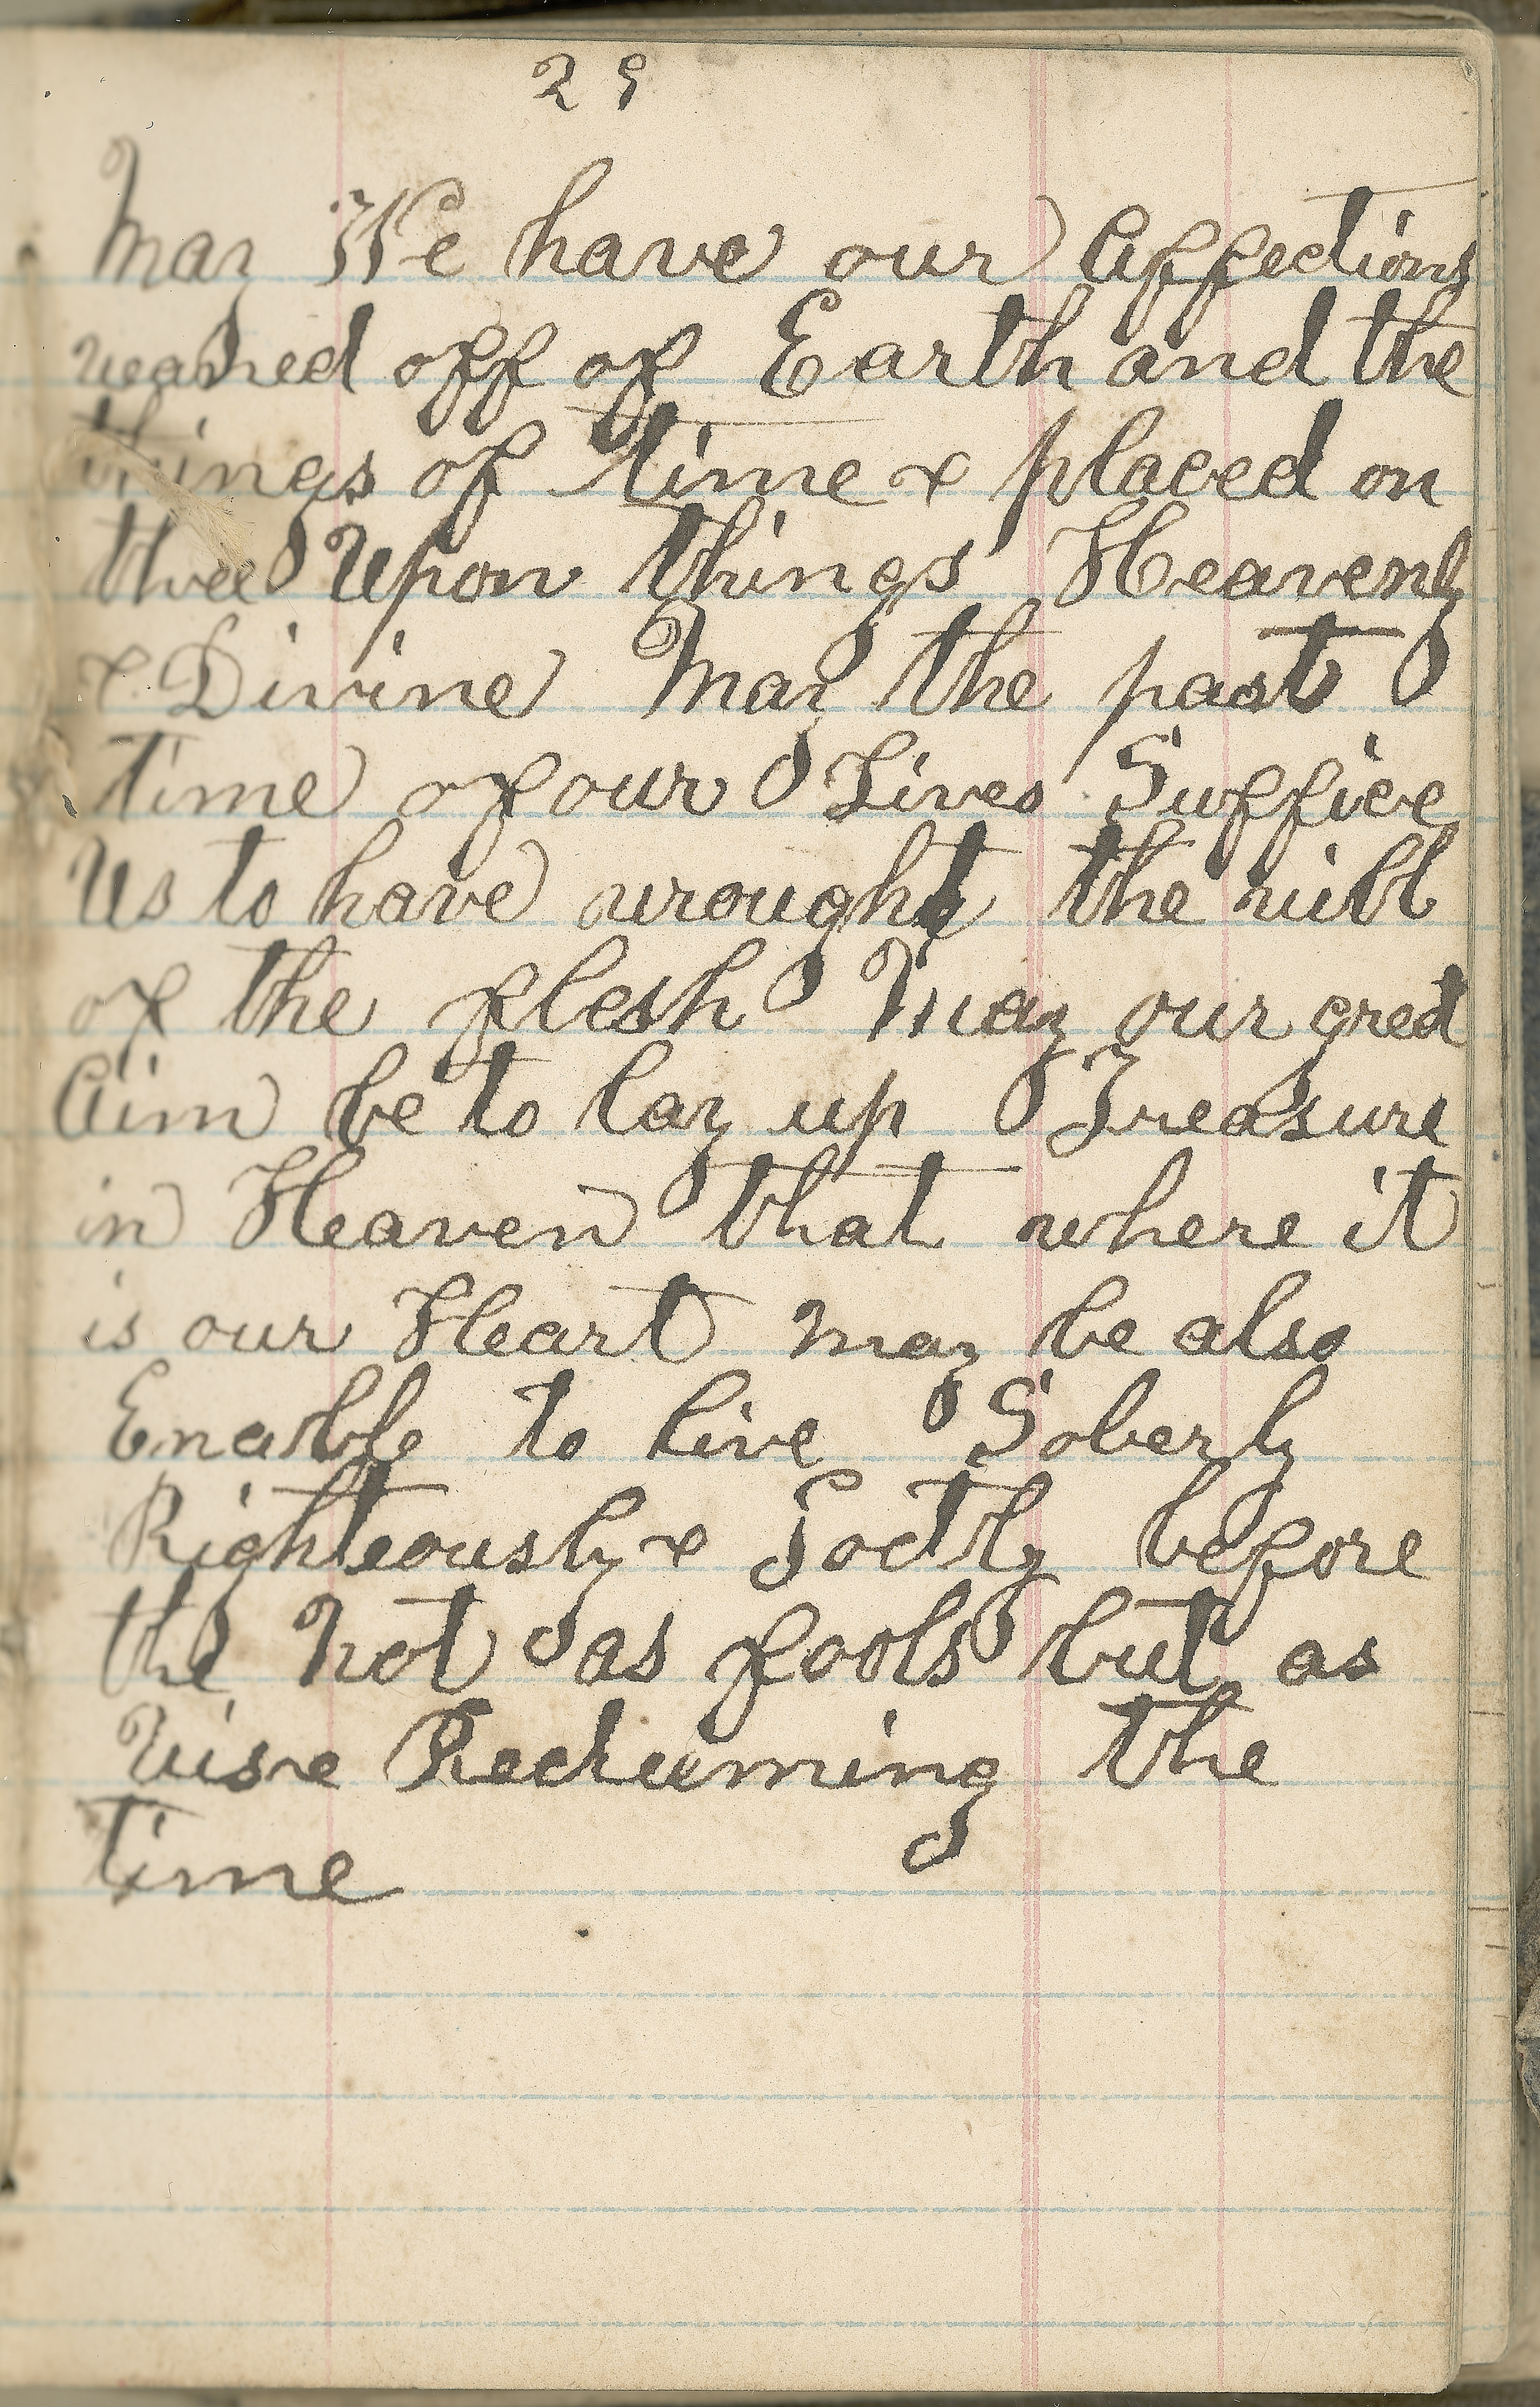 29
May We have our Affections
weaned off of Earth and the
things of time & placed on
thee Upon things Heavenly
& Divine May the past
time of our Lives Suffice
Us to have wrought the will
of the flesh May our gret
Aim be to lay up Treasure
in Heaven that where it
is our Heart may be also
Enable to live Soberly
Righteously & Godly before
the Not as fools but as
Wise Redeeming the
time